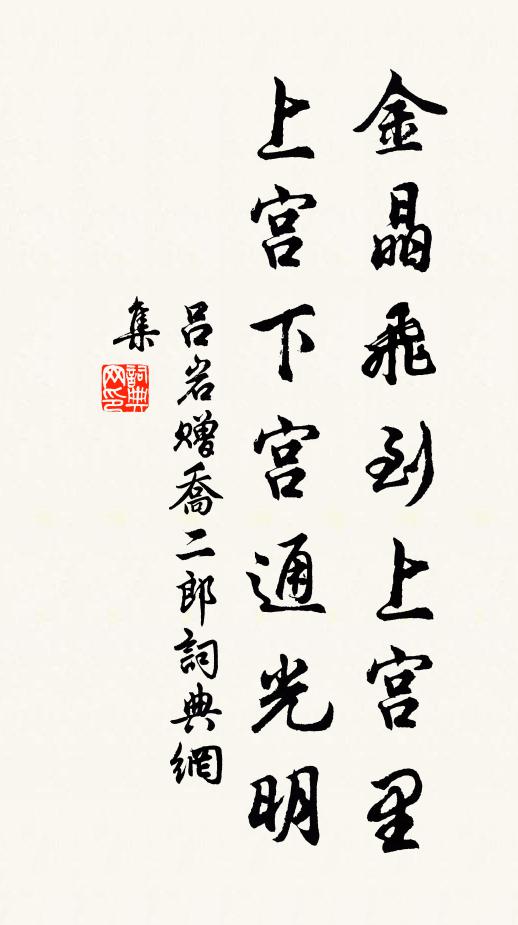 金晶飛到上宮里
上宮下宮通光明
吕岩赠喬二郎詞典網
集
詞典網印